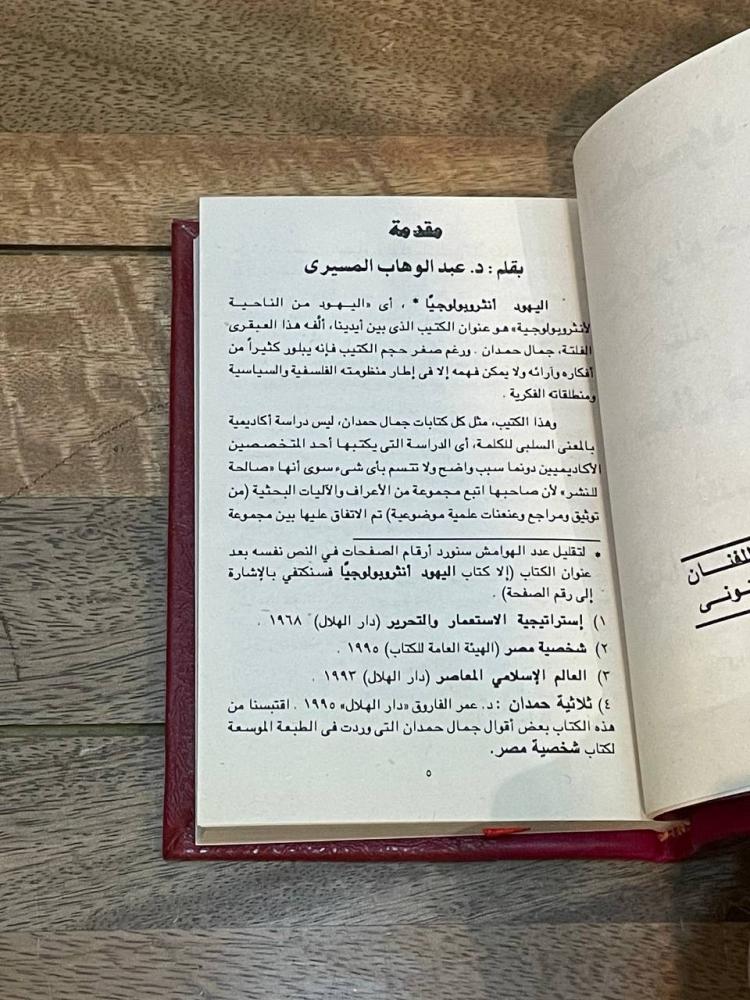 مقدمة
بقلم : د. عبد الوهاب المسيرى
اليهود أنثروبولوجيًا * ، أى «اليهود من الناحية
الأنثروبولوجية» هو عنوان الكتيب الذى بين أيدينا، ألفه هذا العبقرى
الفلتة، جمال حمدان . ورغم صغر حجم الكتيب فإنه يبلور كثيرًا من
أفكاره وآرائه ولا يمكن فهمه إلا فى إطار منظومته الفلسفية والسياسية
ومنطلقاته الفكرية .
وهذا الكتيب، مثل كل كتابات جمال حمدان، ليس دراسة أكاديمية
بالمعنى السلبى للكلمة، أى الدراسة التى يكتبها أحد المتخصصين
الأكاديميين دونما سبب واضح ولا تتسم بأى شىء سوى أنها «صالحة
للنشر» لأن صاحبها اتبع مجموعة من الأعراف والآليات البحثية (من
توثيق ومراجع وعنعنات علمية موضوعية) تم الاتفاق عليها بين مجموعة
* لتقليل عدد الهوامش سنورد أرقام الصفحات في النص نفسه بعد
عنوان الكتاب (إلا كتاب اليهود أنثروبولوجيًا فسنكتفي بالإشارة
إلى رقم الصفحة) .
١) إستراتيجية الاستعمار والتحرير (دار الهلال) ١٩٦٨ .
٢) شخصية مصر (الهيئة العامة للكتاب) ١٩٩٥ .
٣) العالم الإسلامي المعاصر (دار الهلال) ١٩٩٣ .
٤) ثلاثية حمدان : د. عمر الفاروق «دار الهلال» ١٩٩٥ . اقتبسنا من
هذه الكتاب بعض أقوال جمال حمدان التى وردت فى الطبعة الموسعة
لكتاب شخصية مصر.
٥
للفنان